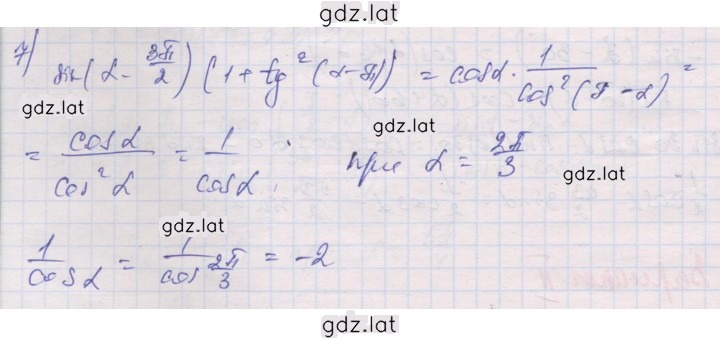 gdz.lat
7) sin(α - 3π/2)(1 + tg²(α-π)) = cosα · 1/cos²(π-α) =
gdz.lat
gdz.lat
= cosα/cos²α = 1/cosα; при α = 2π/3
gdz.lat
gdz.lat
1/cosα = 1/cos 2π/3 = -2
gdz.lat